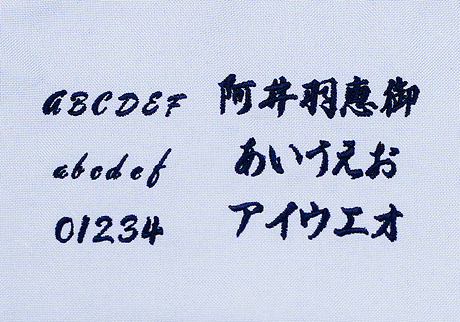 ABCDEF 阿井羽恵御
abcdef あいうえお
01234 アイウエオ